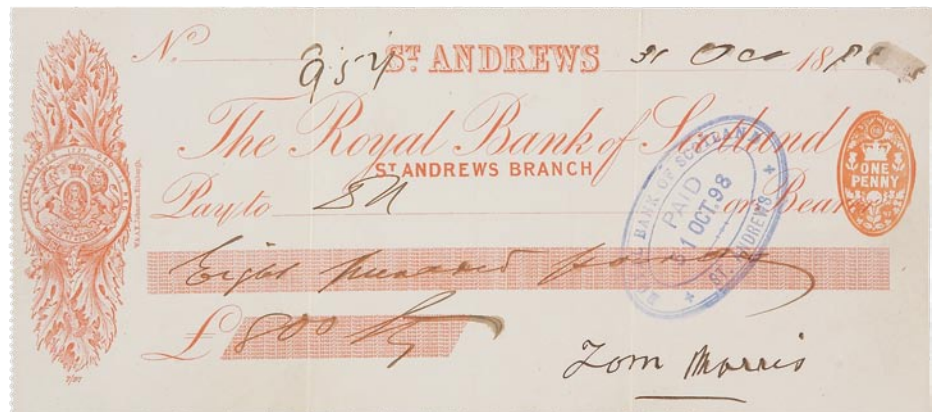 No. 957 ST ANDREWS 31 Oct 189
The Royal Bank of Scotland
ST ANDREWS BRANCH
Pay to or Bearer
Eight hundred pounds
£800
Tom Morris
ROYAL BANK OF SCOTLAND
PAID
31 OCT.98
ST. ANDREWS
ONE
PENNY